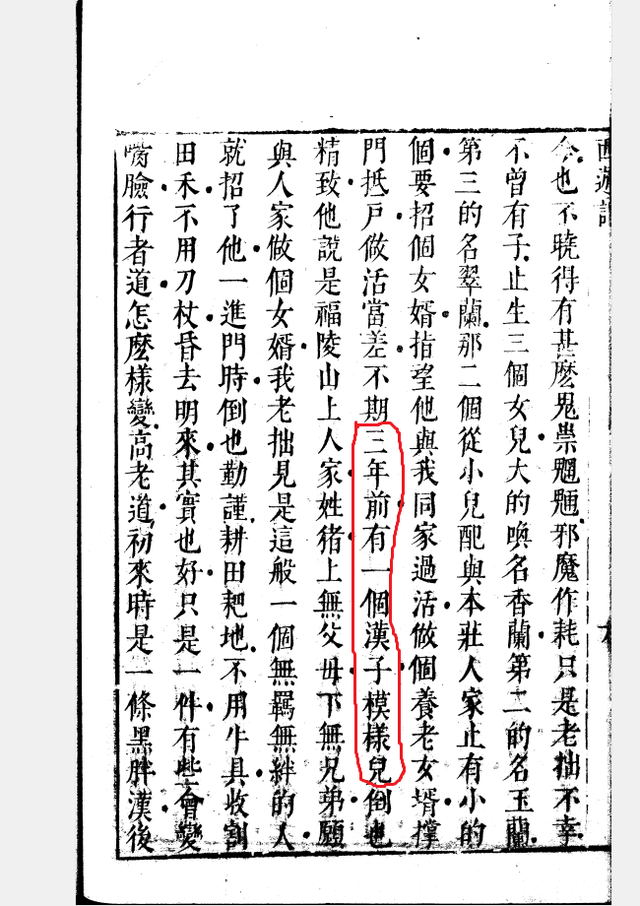 西遊記
今也不曉得有甚麽鬼祟魍魎邪魔作耗只是老拙不幸
不曾有子止生三個女兒大的喚名香蘭第二的名玉蘭
第三的名翠蘭那二個從小兒配與本莊人家止有小的
個要招個女婿指望他與我同家過活做個養老女壻撑
門抵戶做活當差不期三年前有一個漢子模樣兒倒也
精致他說是福陵山上人家姓猪上無父母下無兄弟願
與人家做個女婿我老拙見是這般一個無羈無絆的人
就招了他一進門時倒也勤謹耕田耙地不用牛具收割
田禾不用刀杖昏去明來其實也好只是一件有些會變
嘴臉行者道怎麽樣變高老道初來時是一條黑胖漢後